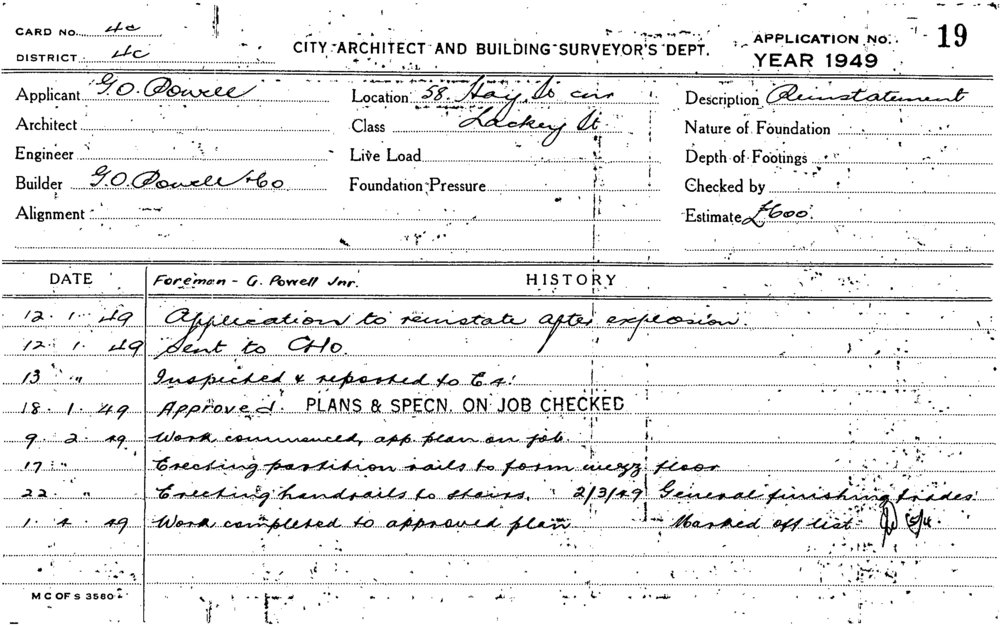 CARD NO. 4c
DISTRICT 4c
CITY ARCHITECT AND BUILDING SURVEYOR'S DEPT.
APPLICATION NO. 19
YEAR 1949
Applicant G.O. Powell
Location 58 Hay St cnr
Description Reinstatement
Architect
Class Lackey St
Nature of Foundation
Engineer
Live Load
Depth of Footings
Builder G.O. Powell & Co
Foundation Pressure
Checked by
Alignment
Estimate £600.
DATE Foreman - G. Powell Jnr. HISTORY
12. 1. 49 Application to reinstate after explosion.
12. 1. 49 Sent to CHO.
13 " Inspected & reported to
18. 1. 49 Approved. PLANS & SPECN. ON JOB CHECKED
9. 2. 49 Work commenced, app. plan on job.
17 " Erecting partition rails to form mezz floor
22. " Erecting handrails to stairs. 2/3/49 General finishing trades.
1. 4. 49 Work completed to approved plan. Marked off list
M C OF S 3580